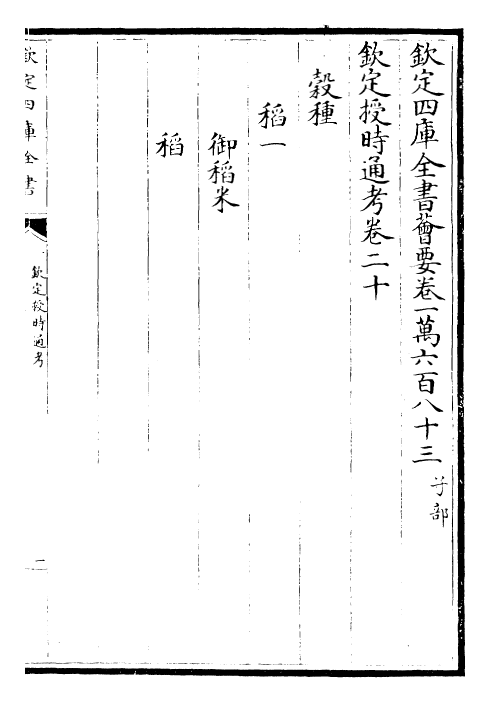 欽定四庫全書薈要卷一萬六百八十三 子部
欽定授時通考卷二十
穀種
稻一
御稻米
稻
欽定四庫全書
欽定授時通考